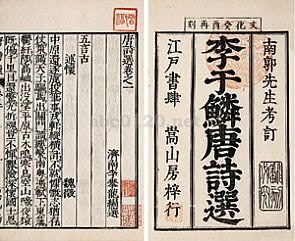 文化癸酉再刻
南郭先生考訂
李于鱗唐詩選
江戸書肆 嵩山房梓行
唐詩選卷之一
濟南李攀龍編選
五言古
述懷 魏徵
中原還逐鹿投筆事戎軒縱橫計不就慷慨志猶存
仗策謁天子驅馬出關門請纓繫南粤憑軾下東藩
鬱紆陟高岫出没望平原古木鳴寒鳥空山啼夜猿
既傷千里目還驚九折魂豈不憚艱險深懷國士恩